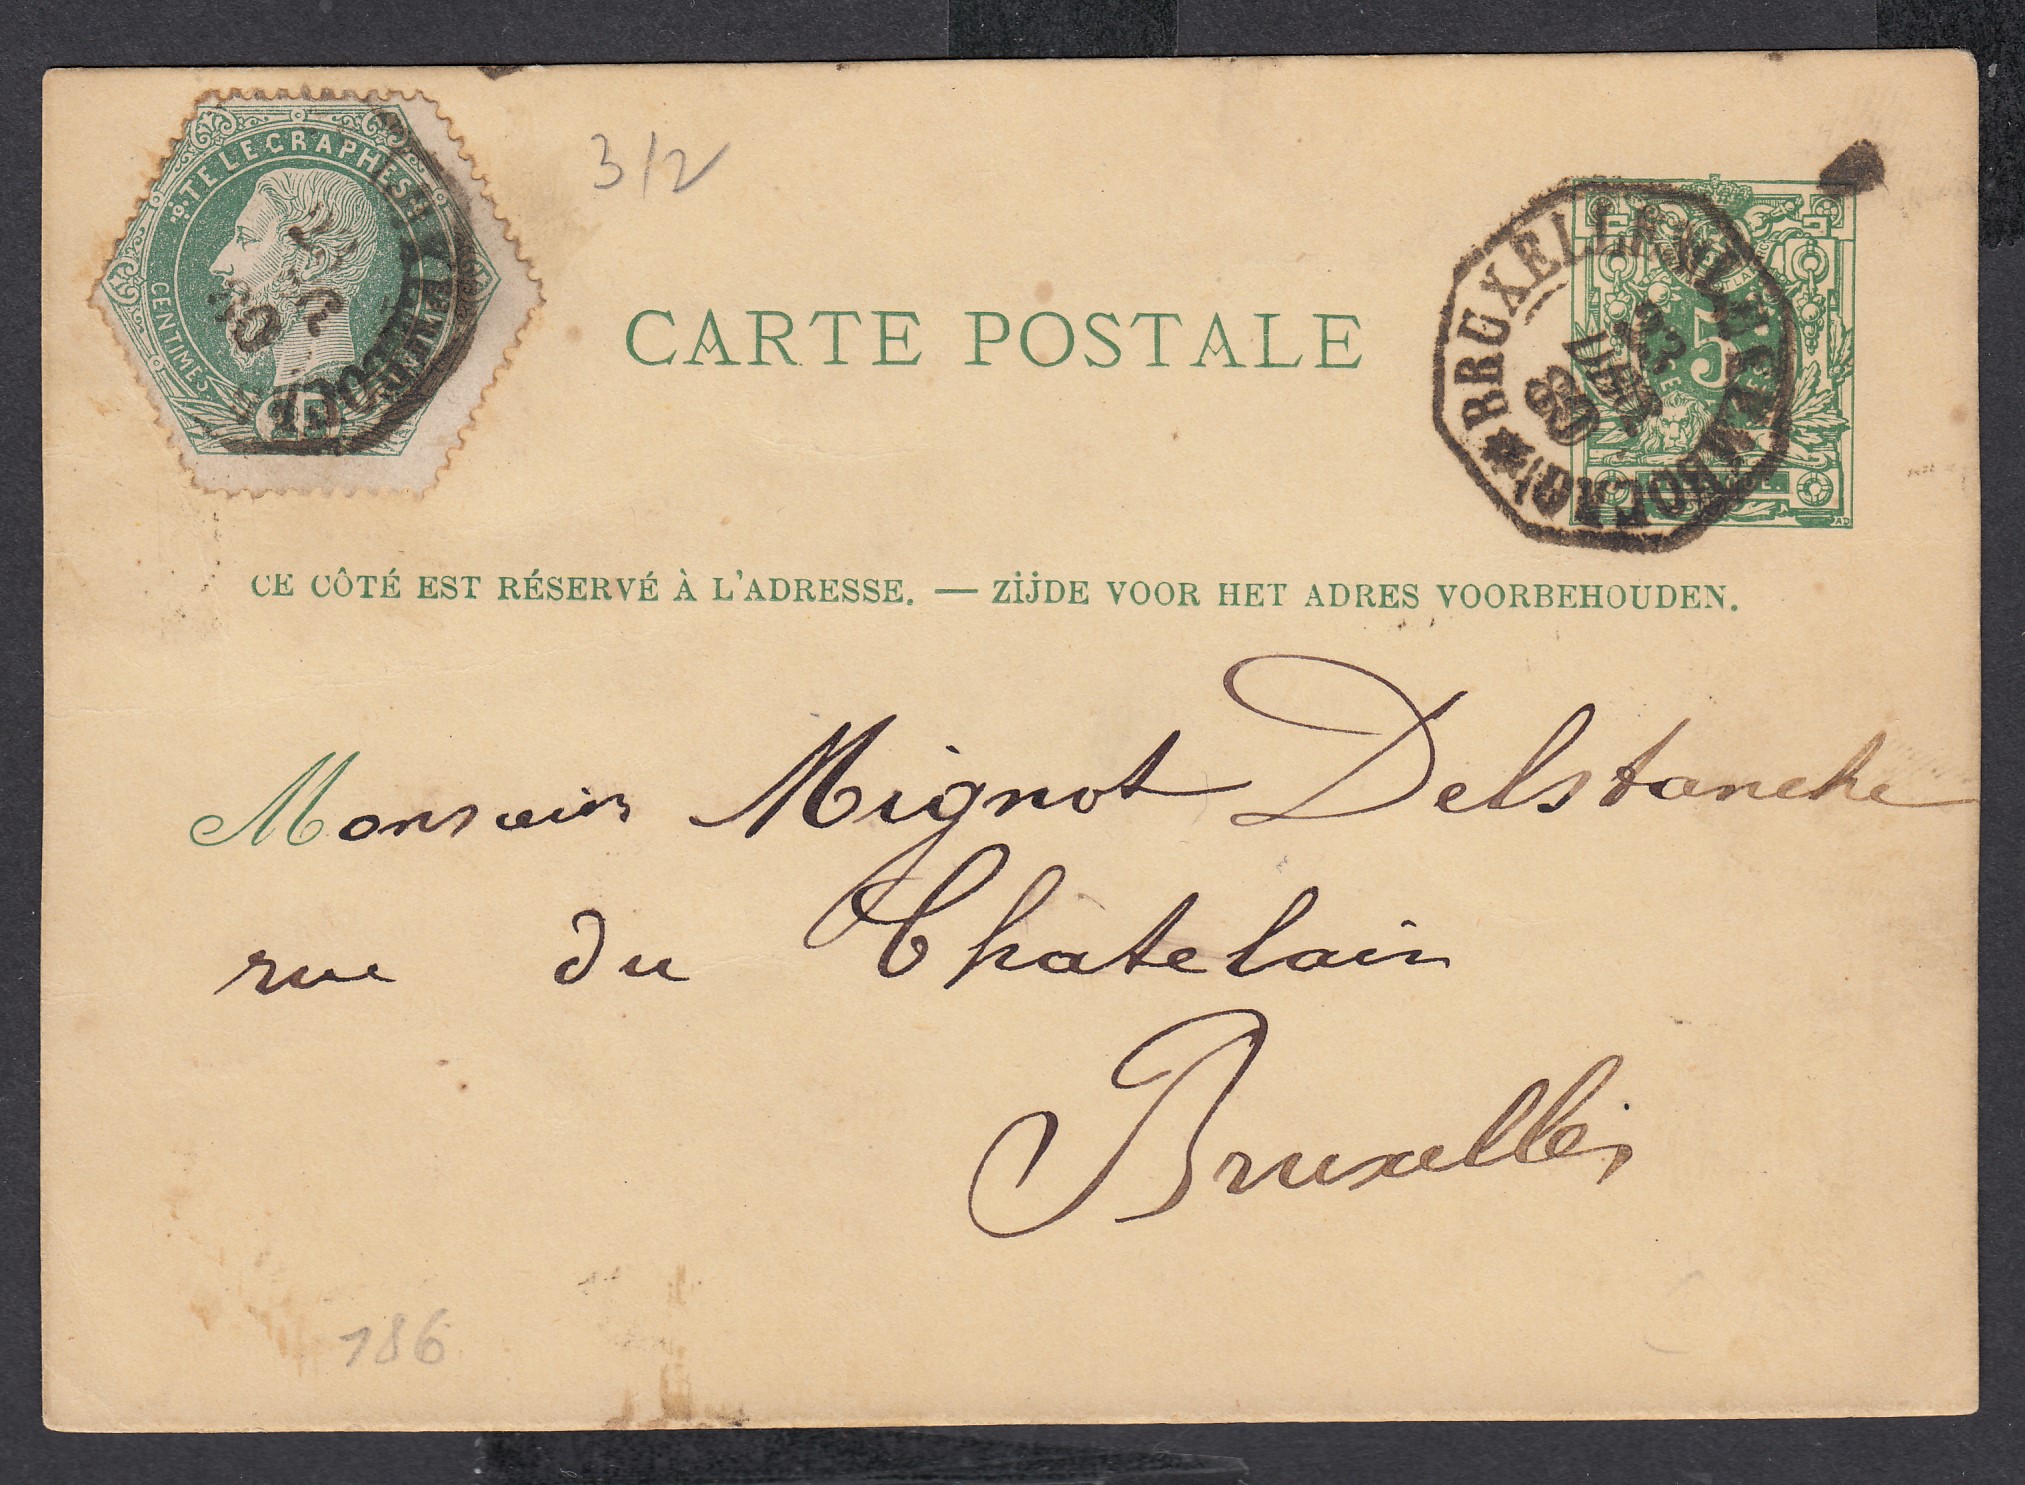 TÉLÉGRAPHES
CENTIMES
3/2
CARTE POSTALE
BRUXELLES
23
DEC
5
CE CÔTÉ EST RÉSERVÉ À L'ADRESSE. — ZIJDE VOOR HET ADRES VOORBEHOUDEN.
Monsieur Mignot Delstanche
rue du Chatelain
Bruxelles
186